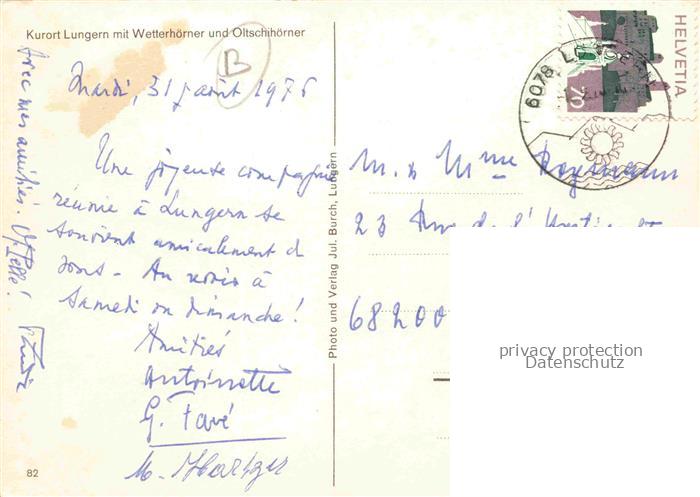 Kurort Lungern mit Wetterhörner und Oltschihörner
B
Mardi, 31 août 1976
Une joyeuse compagnie
réunie à Lungern se
souvient amicalement d
vous - Au revoir à
Samedi ou dimanche!
Amitiés
Antoinette
G. Favé
M.
Avec mes amitiés.
82
Photo und Verlag Jul. Burch, Lungern
HELVETIA
70
6078 L
M. & Mme
23 Rue de l'
68200
privacy protection
Datenschutz